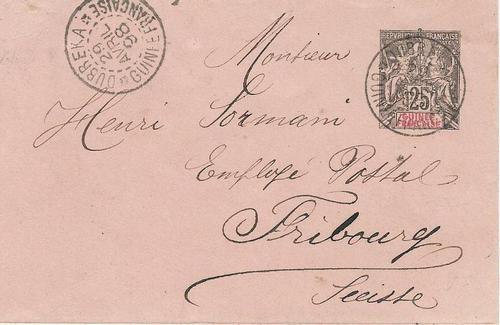 DUBREKA
GUINÉE FRANÇAISE
29
AVRIL
98
RÉPUBLIQUE FRANÇAISE
25
GUINÉE
FRANÇAISE
Monsieur
Henri Sormani
Employé Postal
Fribourg
Suisse